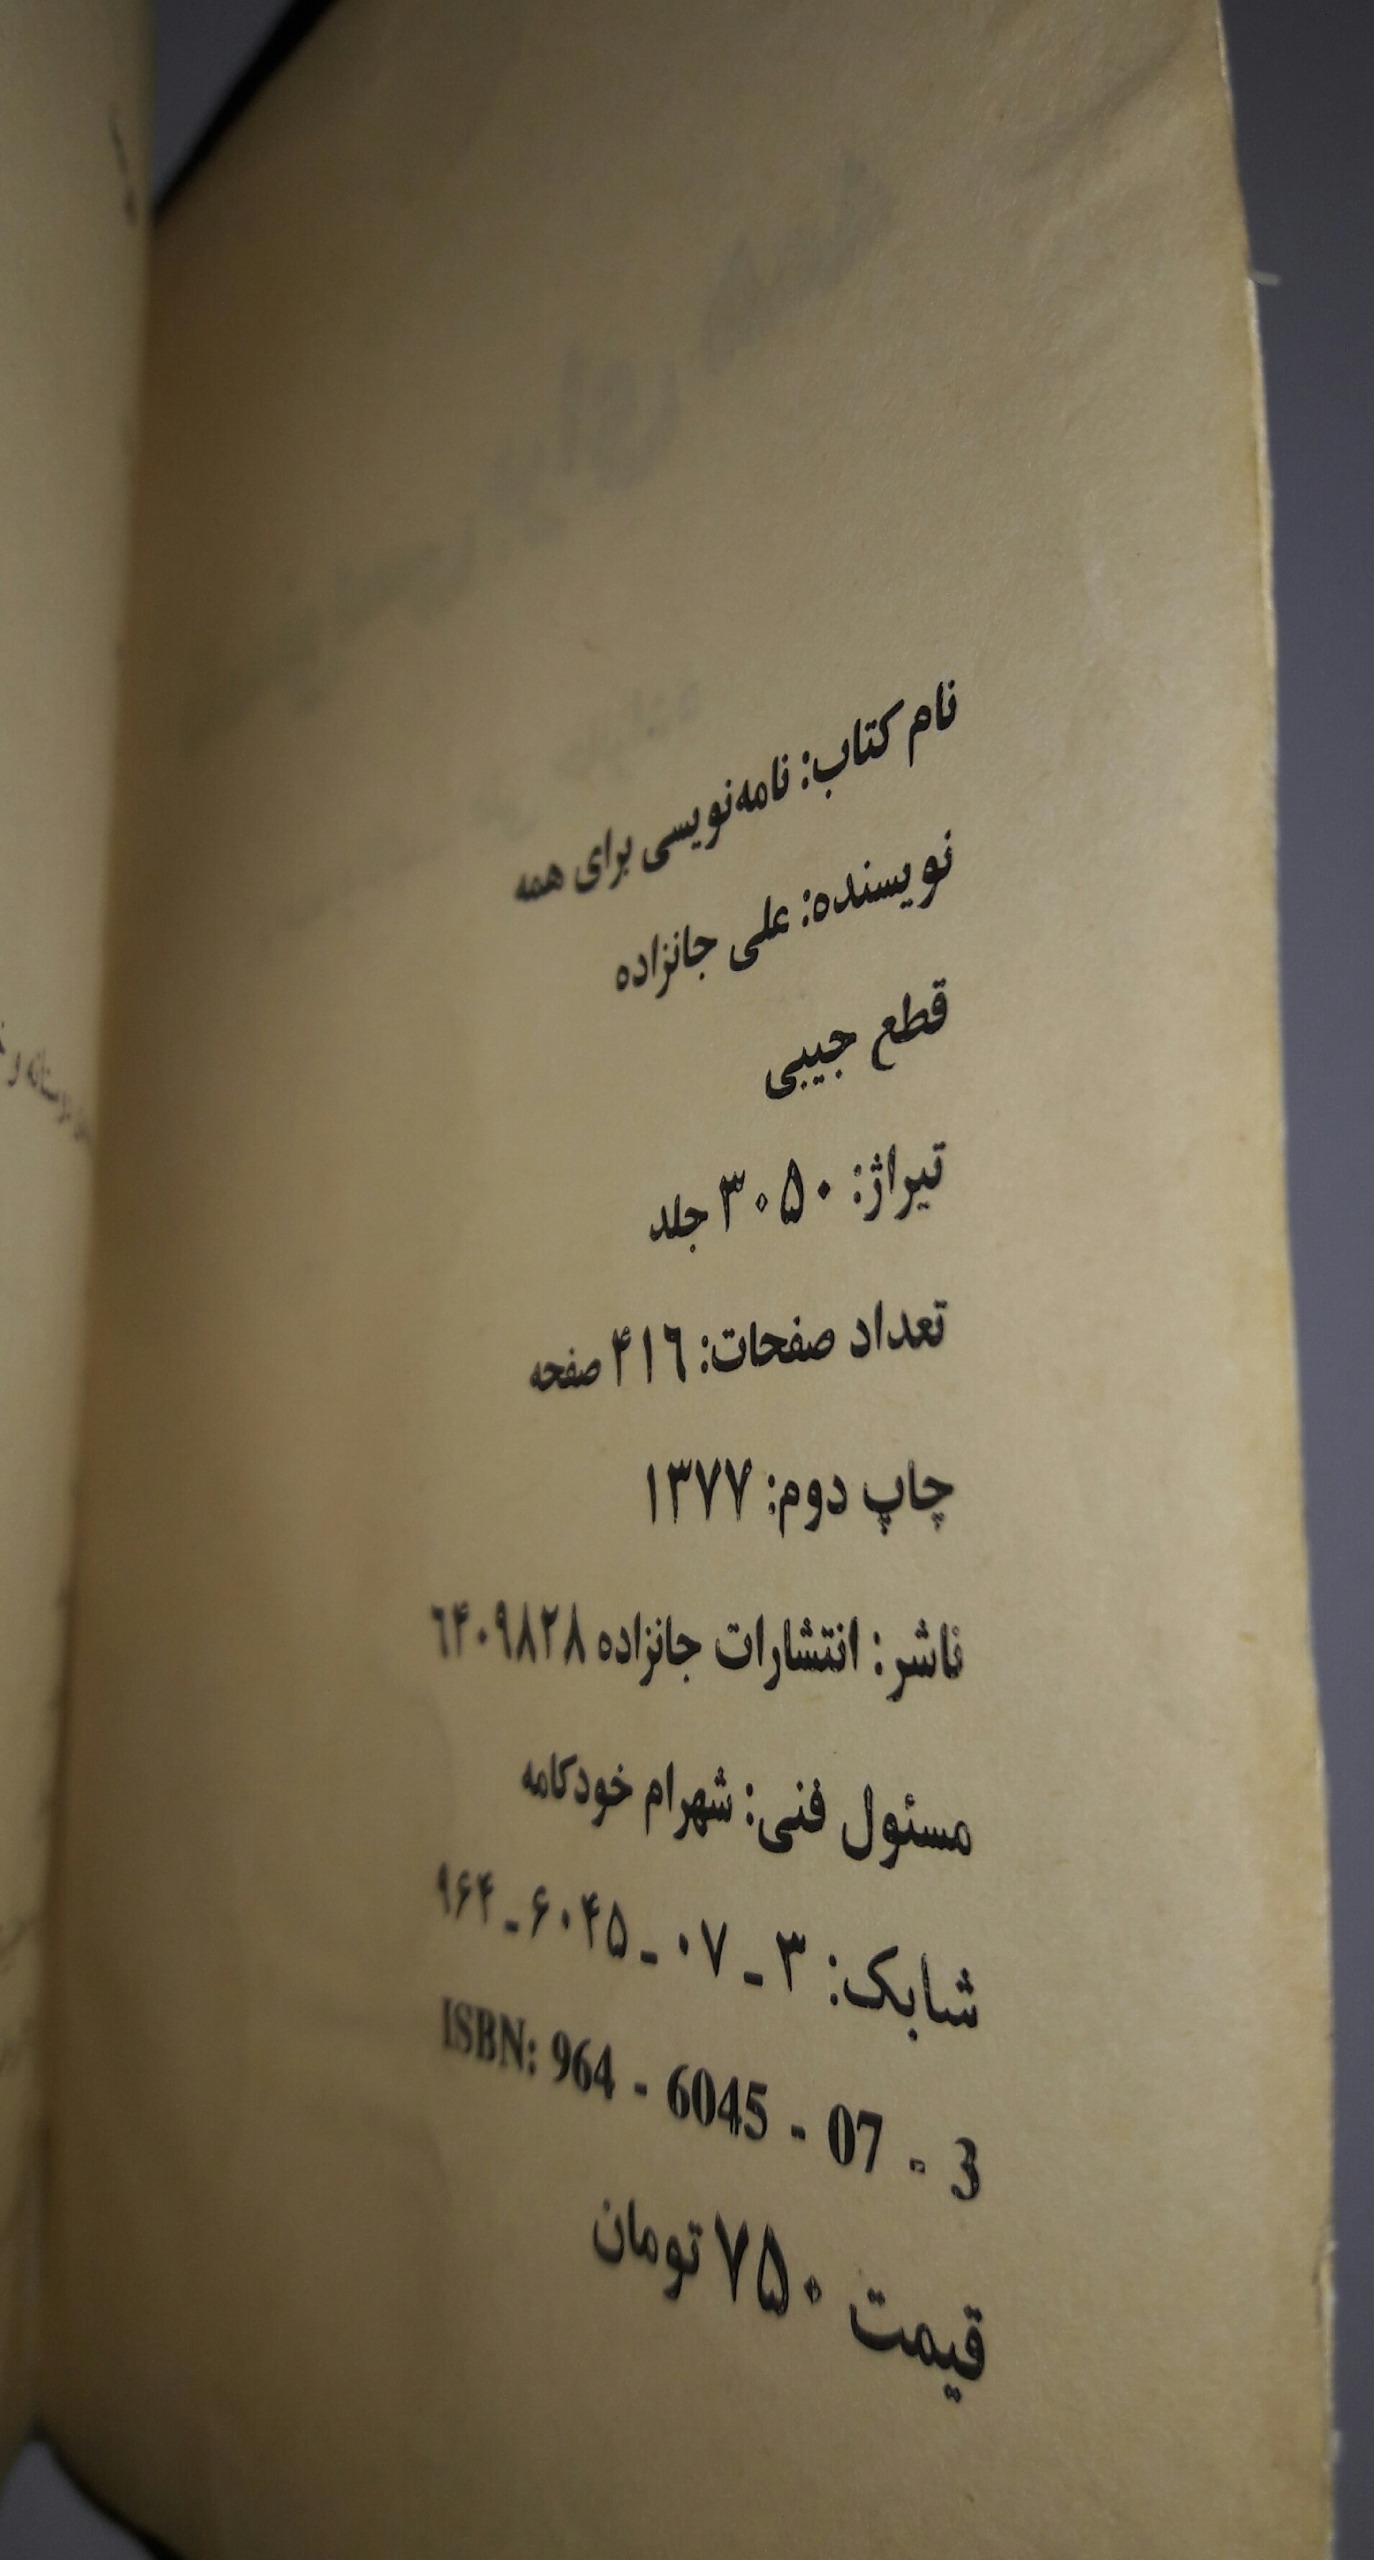 نام کتاب: نامه‌نویسی برای همه
نویسنده: علی جانزاده
قطع جیبی
تیراژ: ۳۰۵۰ جلد
تعداد صفحات: ۴۱۶ صفحه
چاپ دوم: ۱۳۷۷
ناشر: انتشارات جانزاده ۶۴۰۹۸۲۸
مسئول فنی: شهرام خودکامه
شابک: ۳ـ۰۷ـ۶۰۴۵ـ۹۶۴
ISBN: 964 - 6045 - 07 - 3
قیمت ۷۵۰ تومان